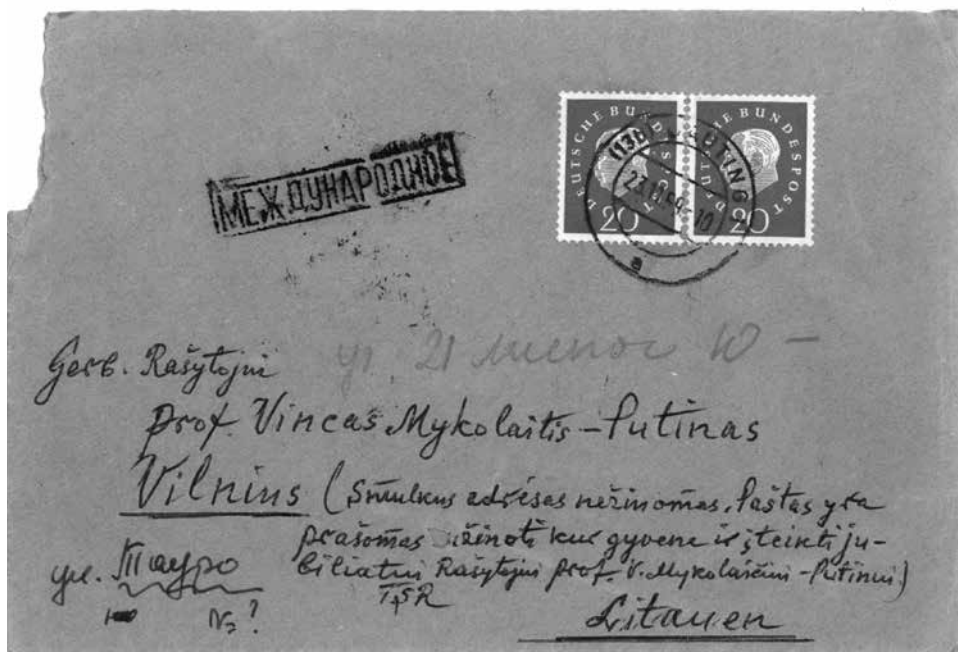 DEUTSCHE BUNDESPOST
20
DEUTSCHE BUNDESPOST
20
(13b)
МЕЖДУНАРОДНОЕ
ул. 21
Gerb. Rašytojui
prof. Vincas Mykolaitis-Putinas
Vilnius (Smulkus adresas nežinomas. Paštas yra
prašomas žinoti kur gyvena ir įteikti ju-
biliatui Rašytojui prof. V. Mykolaičiui-Putinui)
ул. Тауро
№?
Litauen